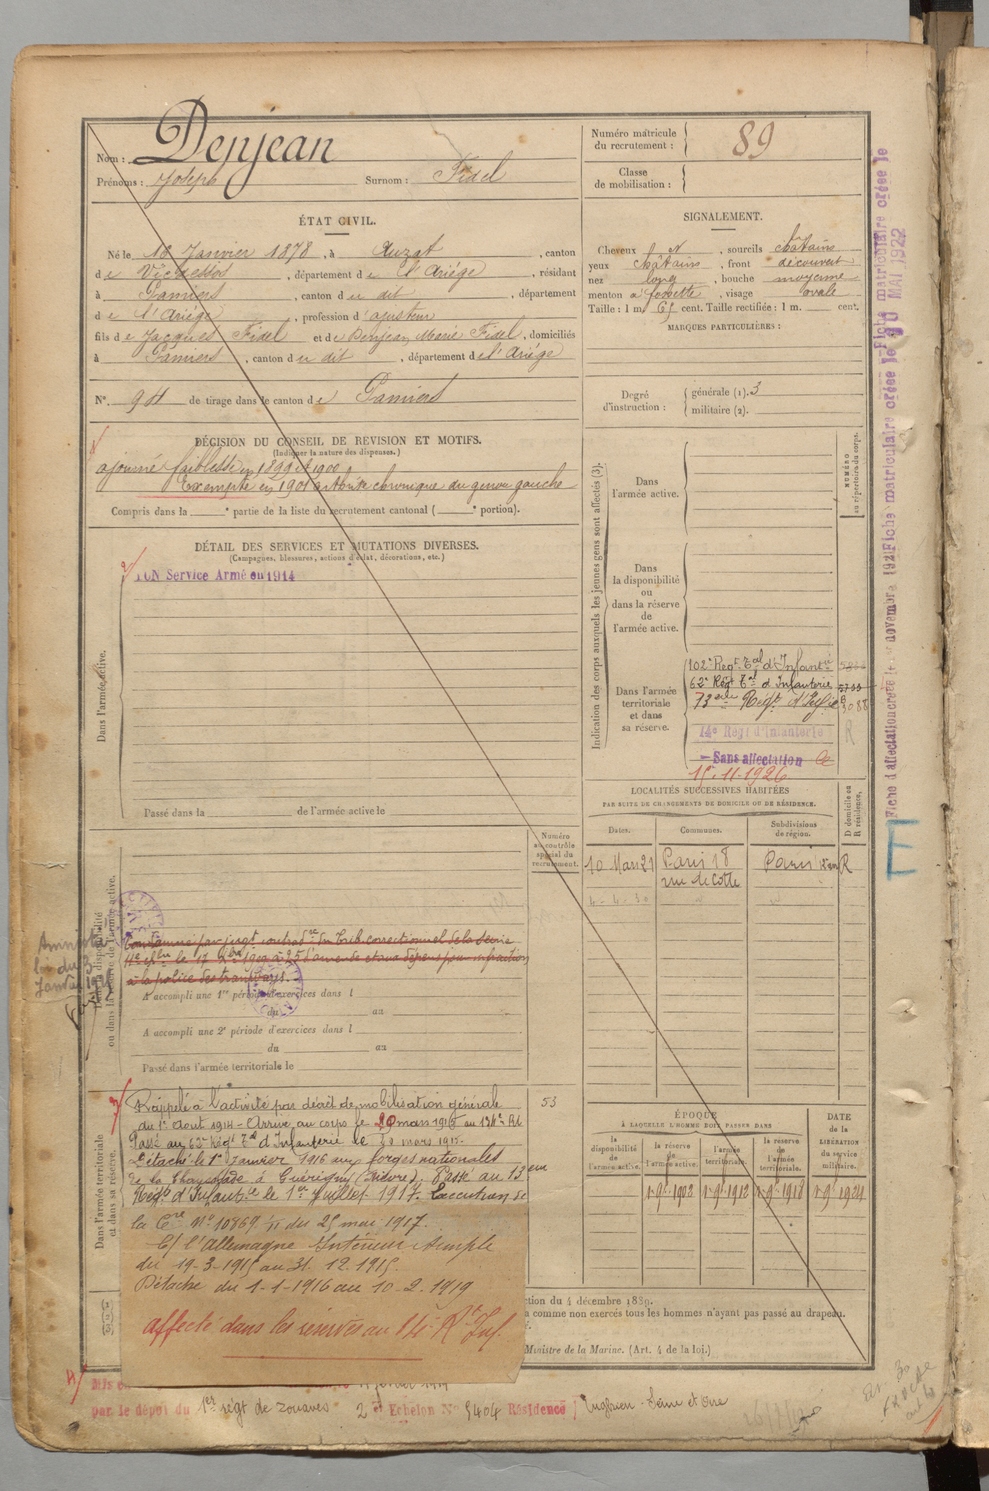 Nom : Denjean
Prénoms : Joseph Surnom : Fidel
Numéro matricule du recrutement : 89
Classe de mobilisation :
ÉTAT CIVIL.
Né le 18 Janvier 1878, à Auzat, canton
de Vicdessos, département de l'Ariége, résidant
à Pamiers, canton du dit, département
de l'Ariége, profession d'ajusteur
fils de Jacques Fidel et de Denjean Marie Fidel, domiciliés
à Pamiers, canton du dit, département de l'Ariége
N°. 94 de tirage dans le canton de Pamiers
SIGNALEMENT.
Cheveux chat, sourcils châtains
yeux châtains, front découvert
nez long, bouche moyenne
menton à fossette, visage ovale
Taille : 1 m. 65 cent. Taille rectifiée : 1 m. cent.
MARQUES PARTICULIÈRES :
Degré d'instruction : générale (1). 3
militaire (2).
DÉCISION DU CONSEIL DE REVISION ET MOTIFS.
(Indiquer la nature des dispenses.)
ajourné faiblesse en 1899 et 1900
Exempté en 1901 arthrite chronique du genou gauche
Compris dans la e partie de la liste du recrutement cantonal ( e portion).
DÉTAIL DES SERVICES ET MUTATIONS DIVERSES.
(Campagnes, blessures, actions d'éclat, décorations, etc.)
Service Armé en 1914
Dans l'armée active.
Passé dans la de l'armée active le
Indication des corps auxquels les jeunes gens sont affectés (3).
NUMÉRO au répertoire du corps.
Dans l'armée active.
Dans la disponibilité ou dans la réserve de l'armée active.
Dans l'armée territoriale et dans sa réserve.
102e Regt Tal d'Infantie
62e Régt Tal d'Infanterie 5799
73eme Regt d'Infie
14e Régt d'Infanterie R
Sans affectation
15-11-1926
LOCALITÉS SUCCESSIVES HABITÉES
PAR SUITE DE CHANGEMENTS DE DOMICILE OU DE RÉSIDENCE.
Dates. Communes. Subdivisions de région. D domicile ou R résidence.
10 Mars 21 Paris 18 Paris R
rue de Cotte
4-4-30
Numéro au contrôle spécial du recrutement.
ou dans la disponibilité ou dans la réserve de l'armée active.
Condamné par jugt contradre du Trib. correctionnel de la Seine
à 25f d'amende et aux dépens pour infraction
à la police des tramways.
Amnistié
loi du 3
Janvier
A accompli une 1re période d'exercices dans l
du au
A accompli une 2e période d'exercices dans l
du au
Passé dans l'armée territoriale le
Dans l'armée territoriale et dans sa réserve.
Rappelé à l'activité par décret de mobilisation générale 53
du 1er Aout 1914 - Arrivé au corps le 20 mars 1915
Passé au 62e Régt Tal d'Infanterie le 30 mars 1915.
Détaché le 1er Janvier 1916 aux forges nationales
de la Chaussade à Guérigny (Nièvre). Passé au 13em
Regt d'Infanterie le 1er Juillet 1917. Execution de
la Cre N° 10869 du 25 mai 1917.
C/ l'Allemagne Intérieur simple
du 19-3-1915 au 31.12.1915.
Détaché du 1-1-1916 au 10-2-1919
affecté dans les réserves au 14e Rt Inf.
ÉPOQUE
À LAQUELLE L'HOMME DOIT PASSER DANS
la disponibilité de l'armée active. la réserve de l'armée active. l'armée territoriale. la réserve de l'armée territoriale.
DATE de la LIBÉRATION DU SERVICE militaire.
1-9bre 1902 1-9bre 1912 1-9bre 1918 1-9bre 1924
ction du 4 décembre 1889.
comme non exercés tous les hommes n'ayant pas passé au drapeau.
Ministre de la Marine. (Art. 4 de la loi.)
Mis en
par le dépot du 1er régt de zouaves 2e Echelon N° 5404 Résidence Enghien Seine et Oise
Fiche matriculaire créée le MAI 1922
Fiche d'affectation créée le novembre 192
Fiche matriculaire créée le
E